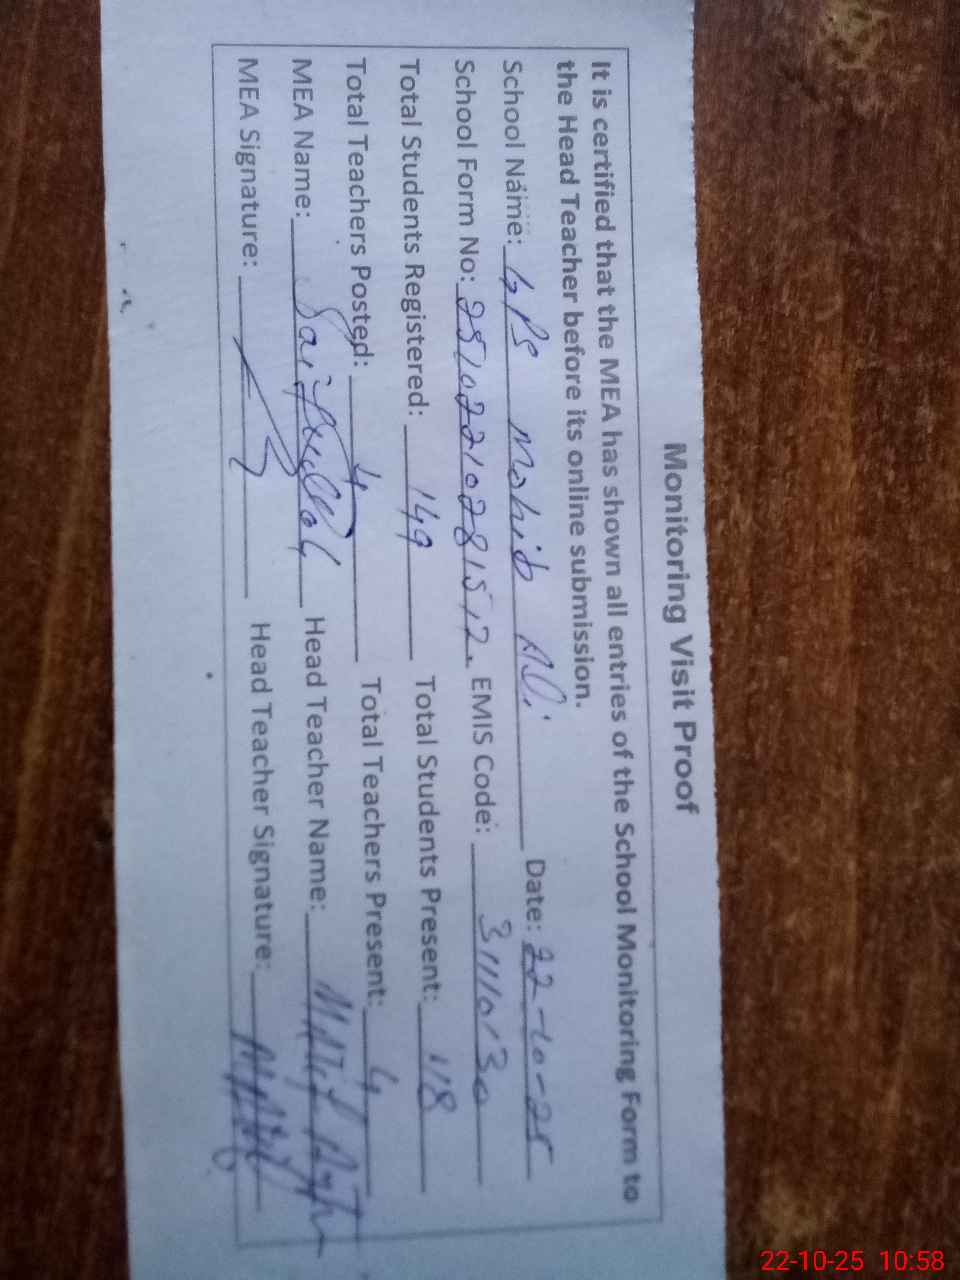 Monitoring Visit Proof
It is certified that the MEA has shown all entries of the School Monitoring Form to
the Head Teacher before its online submission.
School Name: GPS Mohib Ali Date: 22-10-25
School Form No: 25102210281512. EMIS Code: 31110130
Total Students Registered: 149 Total Students Present: 118
Total Teachers Posted: 4 Total Teachers Present: 4
MEA Name: Saifullah Head Teacher Name: M Atif
MEA Signature: Head Teacher Signature:
22-10-25 10:58